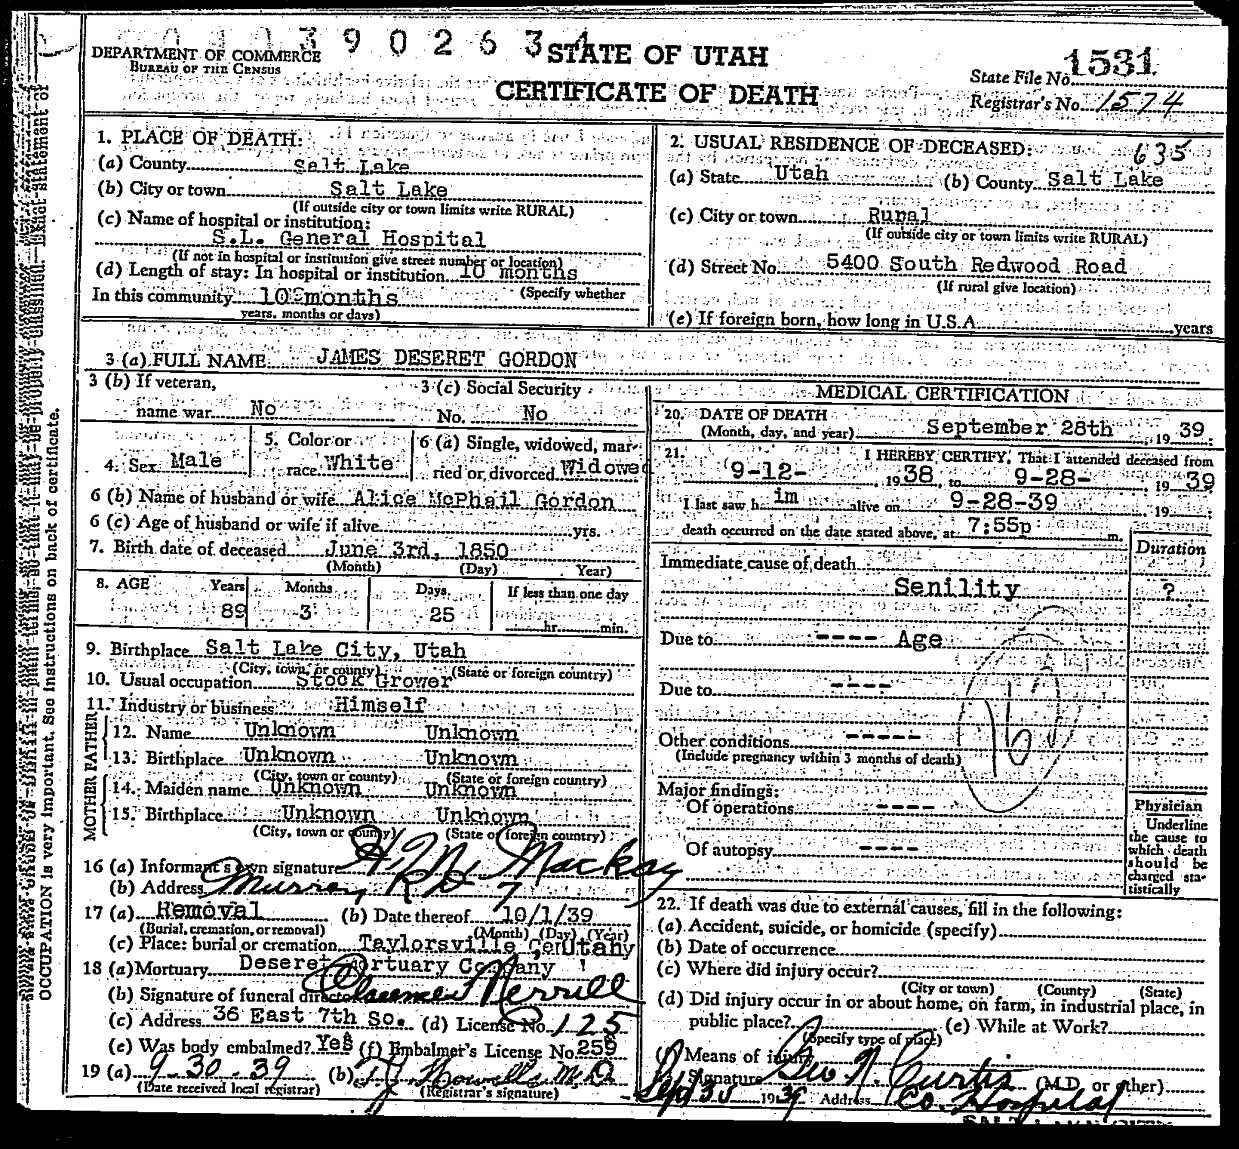 390263
DEPARTMENT OF COMMERCE
BUREAU OF THE CENSUS
STATE OF UTAH
CERTIFICATE OF DEATH
State File No. 1531
Registrar's No. 1574
1. PLACE OF DEATH:
(a) County Salt Lake
(b) City or town Salt Lake
(If outside city or town limits write RURAL)
(c) Name of hospital or institution:
S.L. General Hospital
(If not in hospital or institution give street number or location)
(d) Length of stay: In hospital or institution 10 months
(Specify whether
In this community 10 months
years, months or days)
2. USUAL RESIDENCE OF DECEASED: 635
(a) State Utah (b) County Salt Lake
(c) City or town Rural
(If outside city or town limits write RURAL)
(d) Street No. 5400 South Redwood Road
(If rural give location)
(e) If foreign born, how long in U.S.A. years
3 (a) FULL NAME JAMES DESERET GORDON
3 (b) If veteran,
name war No
3 (c) Social Security
No. No
4. Sex Male
5. Color or
race White
6 (a) Single, widowed, mar-
ried or divorced Widowed
6 (b) Name of husband or wife Alice McPhail Gordon
6 (c) Age of husband or wife if alive yrs.
7. Birth date of deceased June 3rd, 1850
(Month) (Day) Year)
8. AGE Years Months Days If less than one day
89 3 25 hr. min.
9. Birthplace Salt Lake City, Utah
(City, town, or county) (State or foreign country)
10. Usual occupation Stock Grower
11. Industry or business Himself
FATHER
12. Name Unknown Unknown
13. Birthplace Unknown Unknown
(City, town or county) (State or foreign country)
MOTHER
14. Maiden name Unknown Unknown
15. Birthplace Unknown Unknown
(City, town or county) (State or foreign country)
16 (a) Informant's own signature Mackay
(b) Address Murray R D 7
17 (a) Removal (b) Date thereof 10/1/39
(Burial, cremation, or removal) (Month) (Day) (Year)
(c) Place: burial or cremation Taylorsville Cem Utah
18 (a) Mortuary Deseret Mortuary Company
(b) Signature of funeral director Merrill
(c) Address 36 East 7th So. (d) License No. 125
(e) Was body embalmed? Yes (f) Embalmer's License No. 259
19 (a) 9-30-39 (b) M.D.
(Date received local registrar) (Registrar's signature)
MEDICAL CERTIFICATION
20. DATE OF DEATH
(Month, day, and year) September 28th 1939
21. I HEREBY CERTIFY, That I attended deceased from
9-12- , 1938, to 9-28- , 1939
I last saw him alive on 9-28-39 , 19
death occurred on the date stated above, at 7:55p m.
Duration
Immediate cause of death
Senility ?
Due to ---- Age
Due to ----
Other conditions -----
(Include pregnancy within 3 months of death)
Major findings:
Of operations ----
Of autopsy ----
Physician
Underline
the cause to
which death
should be
charged sta-
tistically
22. If death was due to external causes, fill in the following:
(a) Accident, suicide, or homicide (specify)
(b) Date of occurrence
(c) Where did injury occur?
(City or town) (County) (State)
(d) Did injury occur in or about home, on farm, in industrial place, in
public place? (e) While at Work?
(Specify type of place)
(f) Means of injury
Signature Geo N. Curtis (M.D. or other)
Sept 30 1939 Address Co. Hospital
OCCUPATION is very important. See instructions on back of certificate.